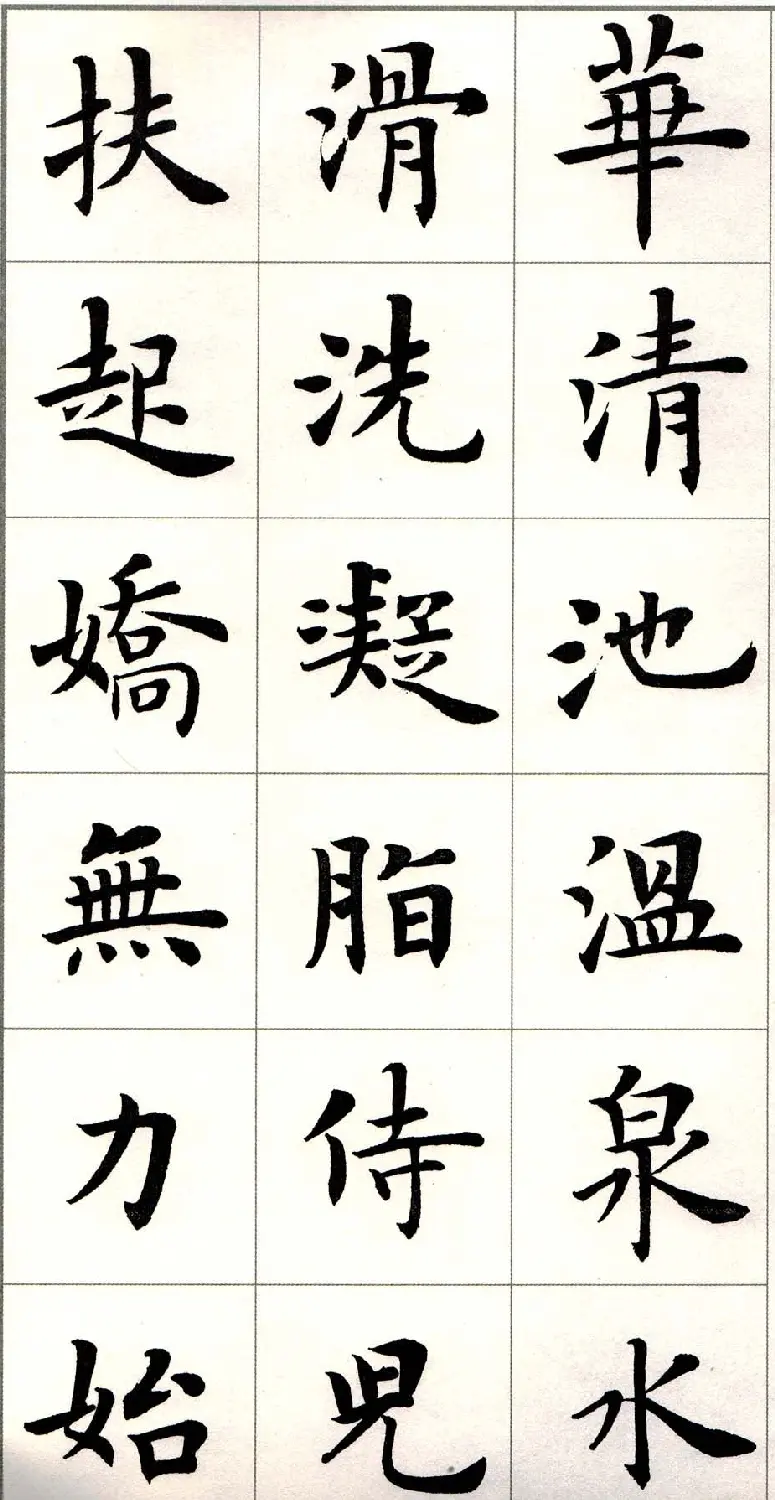 華清池溫泉水
滑洗凝脂侍兒
扶起嬌無力始